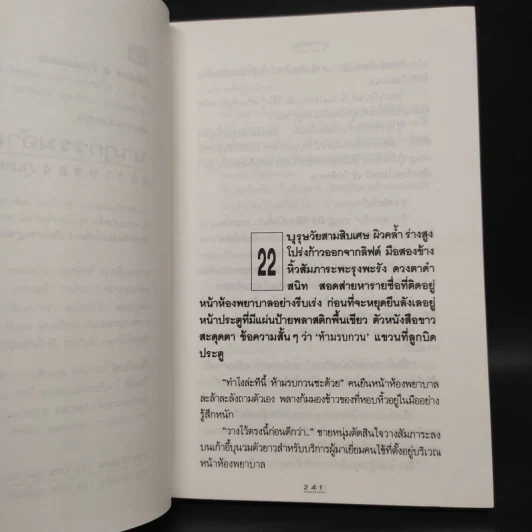 22
บุรุษวัยสามสิบเศษ ผิวคล้ำ ร่างสูง
โปร่งก้าวออกจากลิฟต์ มือสองข้าง
หิ้วสัมภาระพะรุงพะรัง ดวงตาดำ
สนิท สอดส่ายหารายชื่อที่ติดอยู่
หน้าห้องพยาบาลอย่างรีบเร่ง ก่อนที่จะหยุดยืนลังเลอยู่
หน้าประตูที่มีแผ่นป้ายพลาสติกพื้นเขียว ตัวหนังสือขาว
สะดุดตา ข้อความสั้น ๆ ว่า ‘ห้ามรบกวน’ แขวนที่ลูกบิด
ประตู
“ทำไงล่ะทีนี้ ห้ามรบกวนซะด้วย” คนยืนหน้าห้องพยาบาล
ละล้าละลังถามตัวเอง พลางก้มมองข้าวของที่หอบหิ้วอยู่ในมืออย่าง
รู้สึกหนัก
“วางไว้ตรงนี้ก่อนดีกว่า..” ชายหนุ่มตัดสินใจวางสัมภาระลง
บนเก้าอี้บุนวมตัวยาวสำหรับบริการผู้มาเยี่ยมคนไข้ที่ตั้งอยู่บริเวณ
หน้าห้องพยาบาล
241